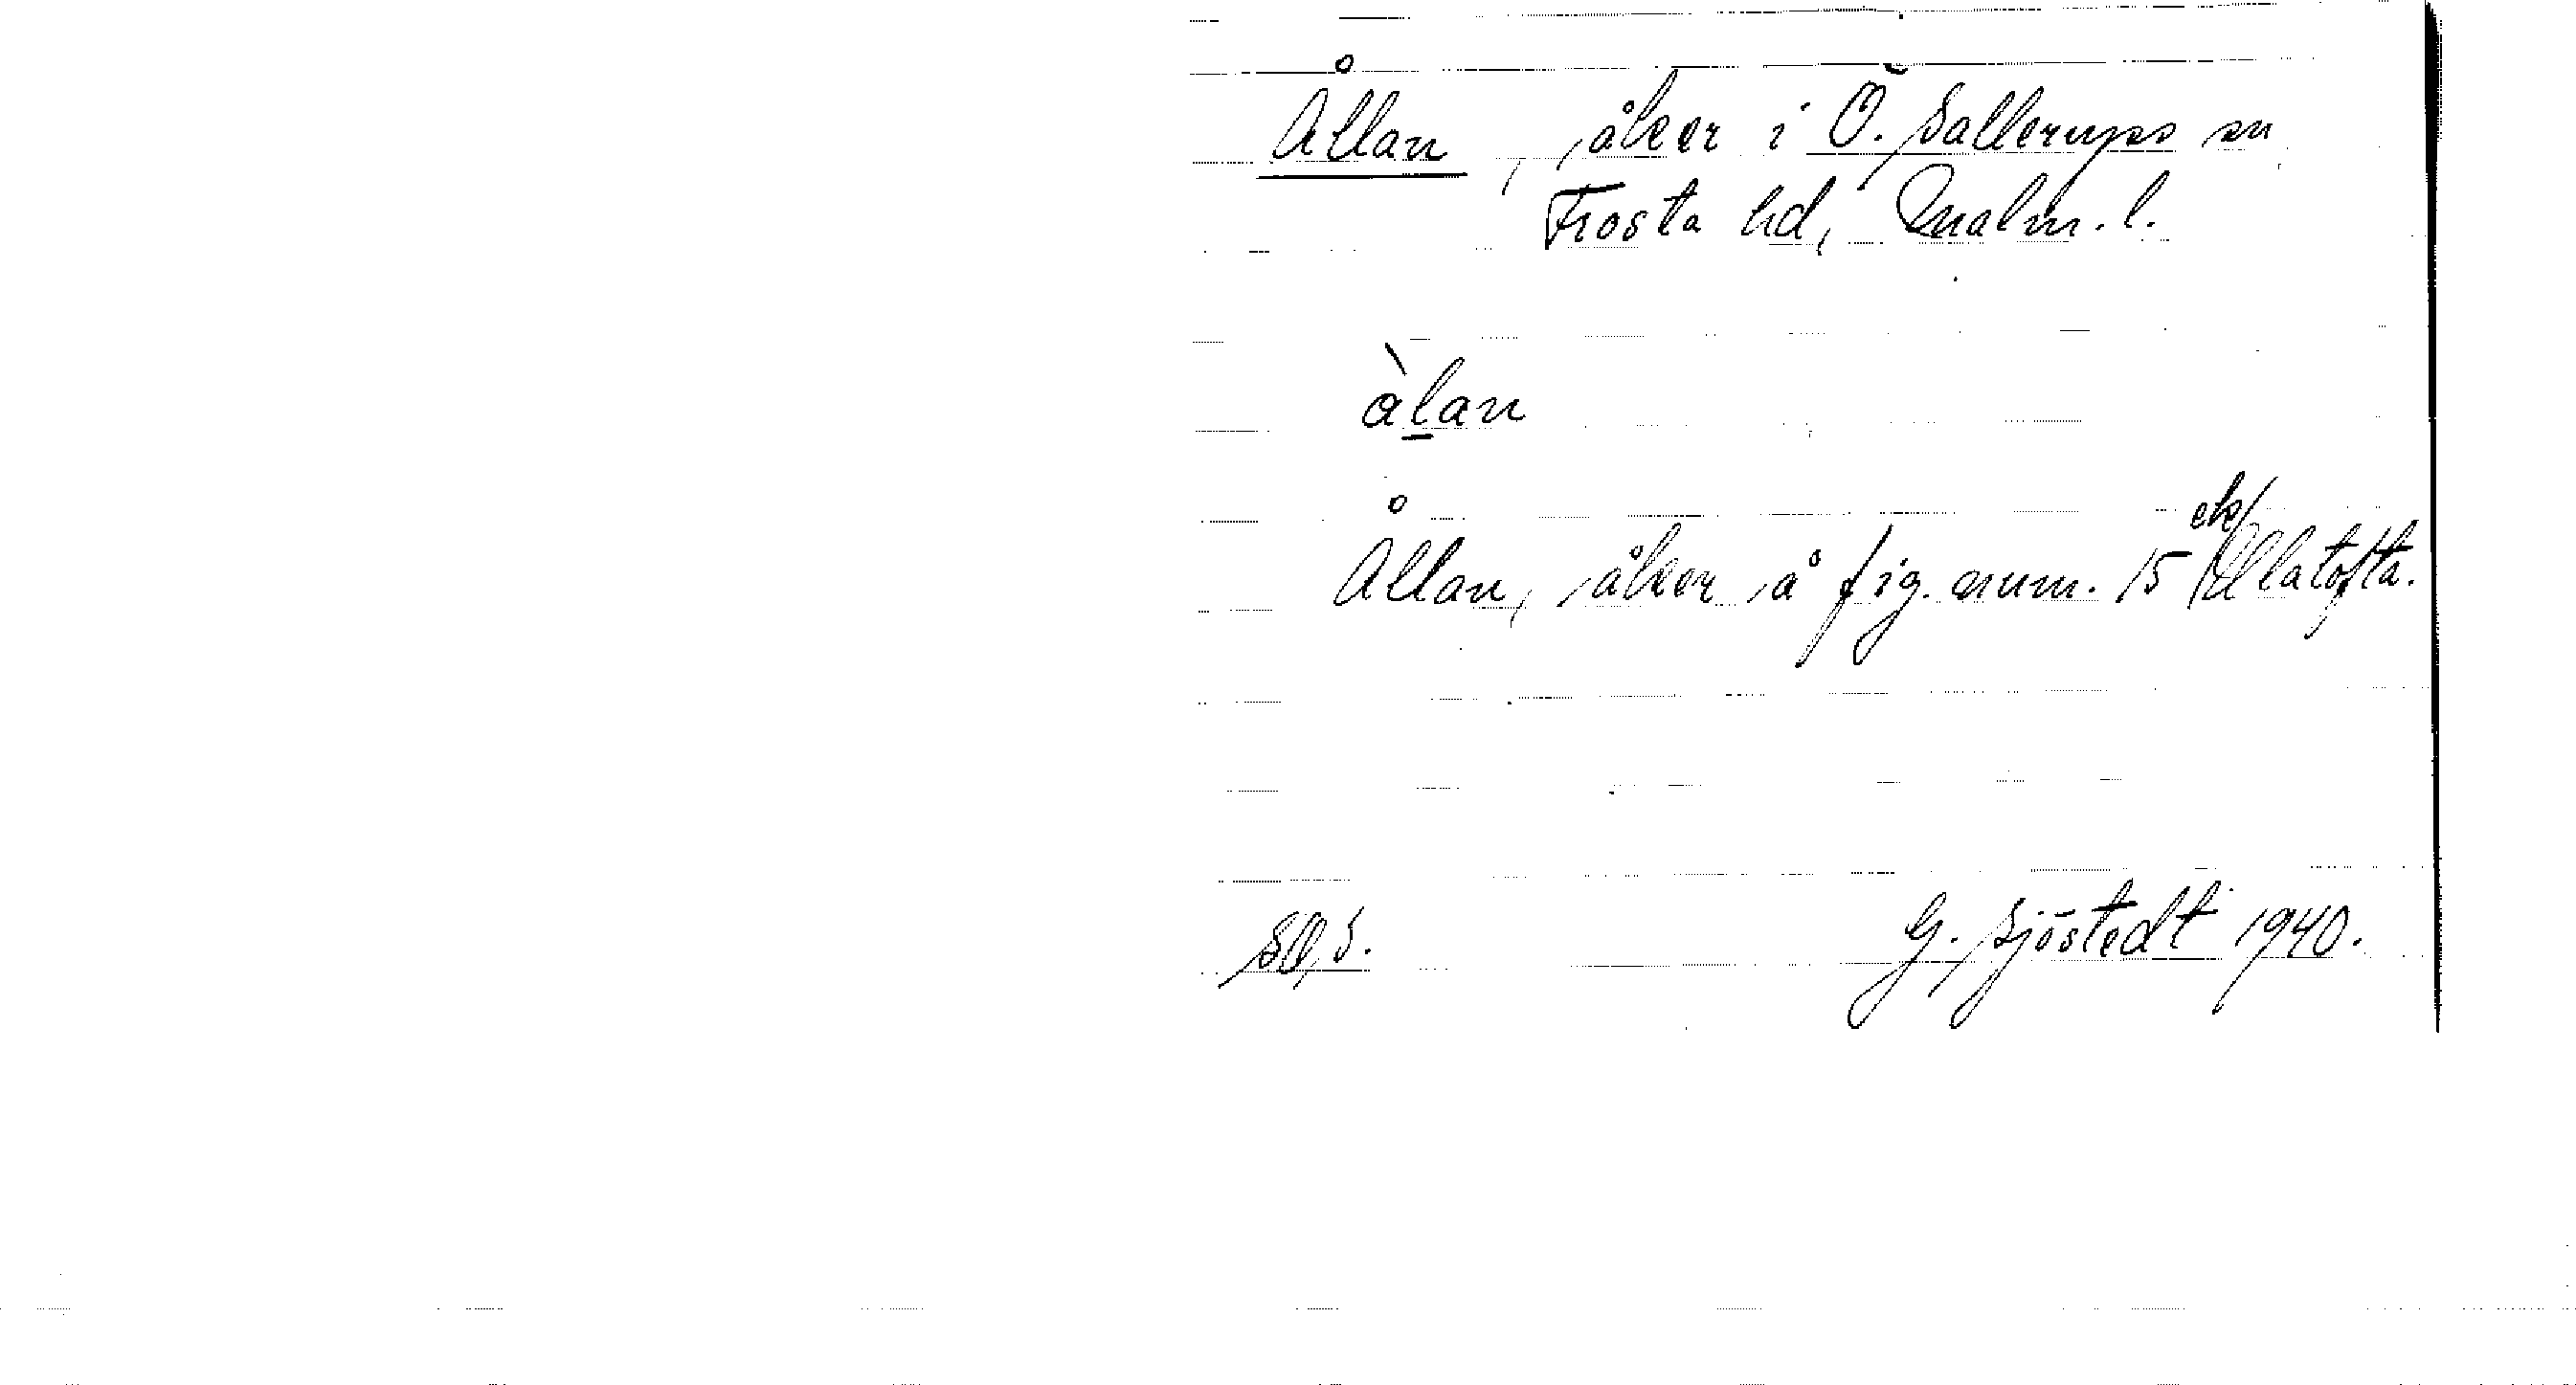 Ållan, åker i Ö. Sallerups sn
Frosta hd, Malm. l.
àlan
Ållan, åker å fig. num. 15 ek/ Ullatofta.
G. Sjöstedt 1940.